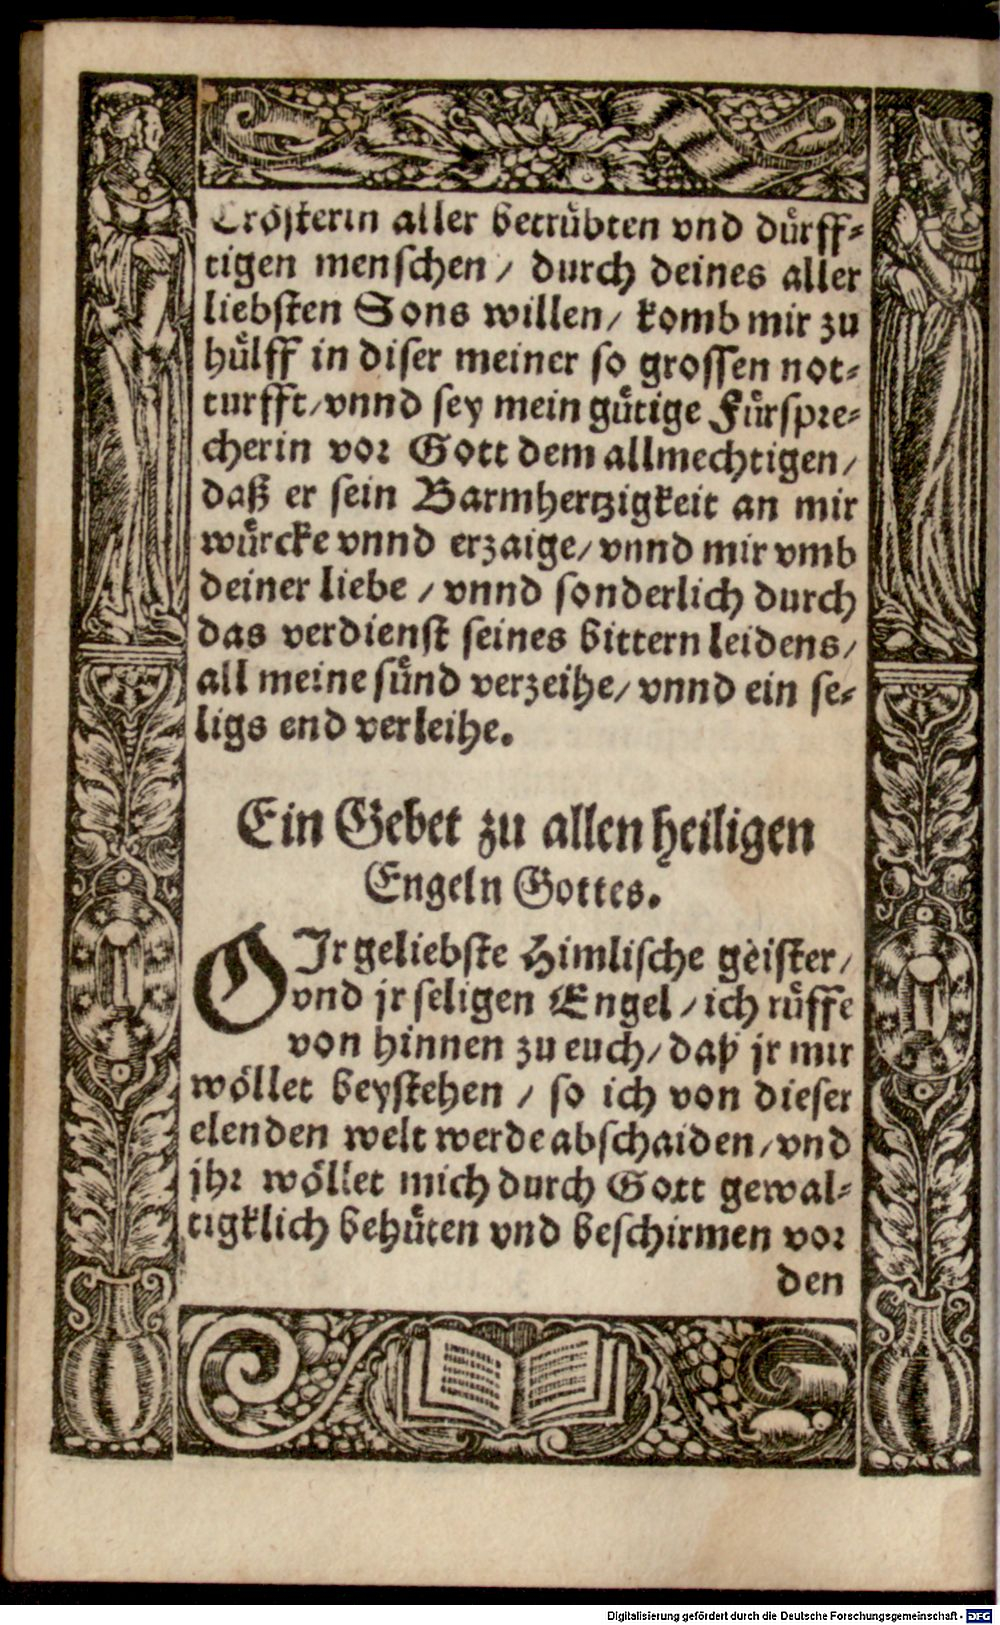 Trösterin aller betrübten vnd dürff-
tigen menschen / durch deines aller
liebsten Sons willen / komb mir zu
hülff in diser meiner so grossen not-
turfft / vnnd sey mein gütige Fürspre-
cherin vor Gott dem allmechtigen /
daß er sein Barmhertzigkeit an mir
würcke vnnd erzaige / vnnd mir vmb
deiner liebe / vnnd sonderlich durch
das verdienst seines bittern leidens /
all meine sünd verzeihe / vnnd ein se-
ligs end verleihe.
Ein Gebet zu allen heiligen
Engeln Gottes.
O Jr geliebste Himlische geister /
vnd jr seligen Engel / ich rüffe
von hinnen zu euch / daß jr mir
wöllet beystehen / so ich von dieser
elenden welt werde abschaiden / vnd
jhr wöllet mich durch Gott gewal-
tigklich behüten vnd beschirmen vor
den
Digitalisierung gefördert durch die Deutsche Forschungsgemeinschaft - DFG